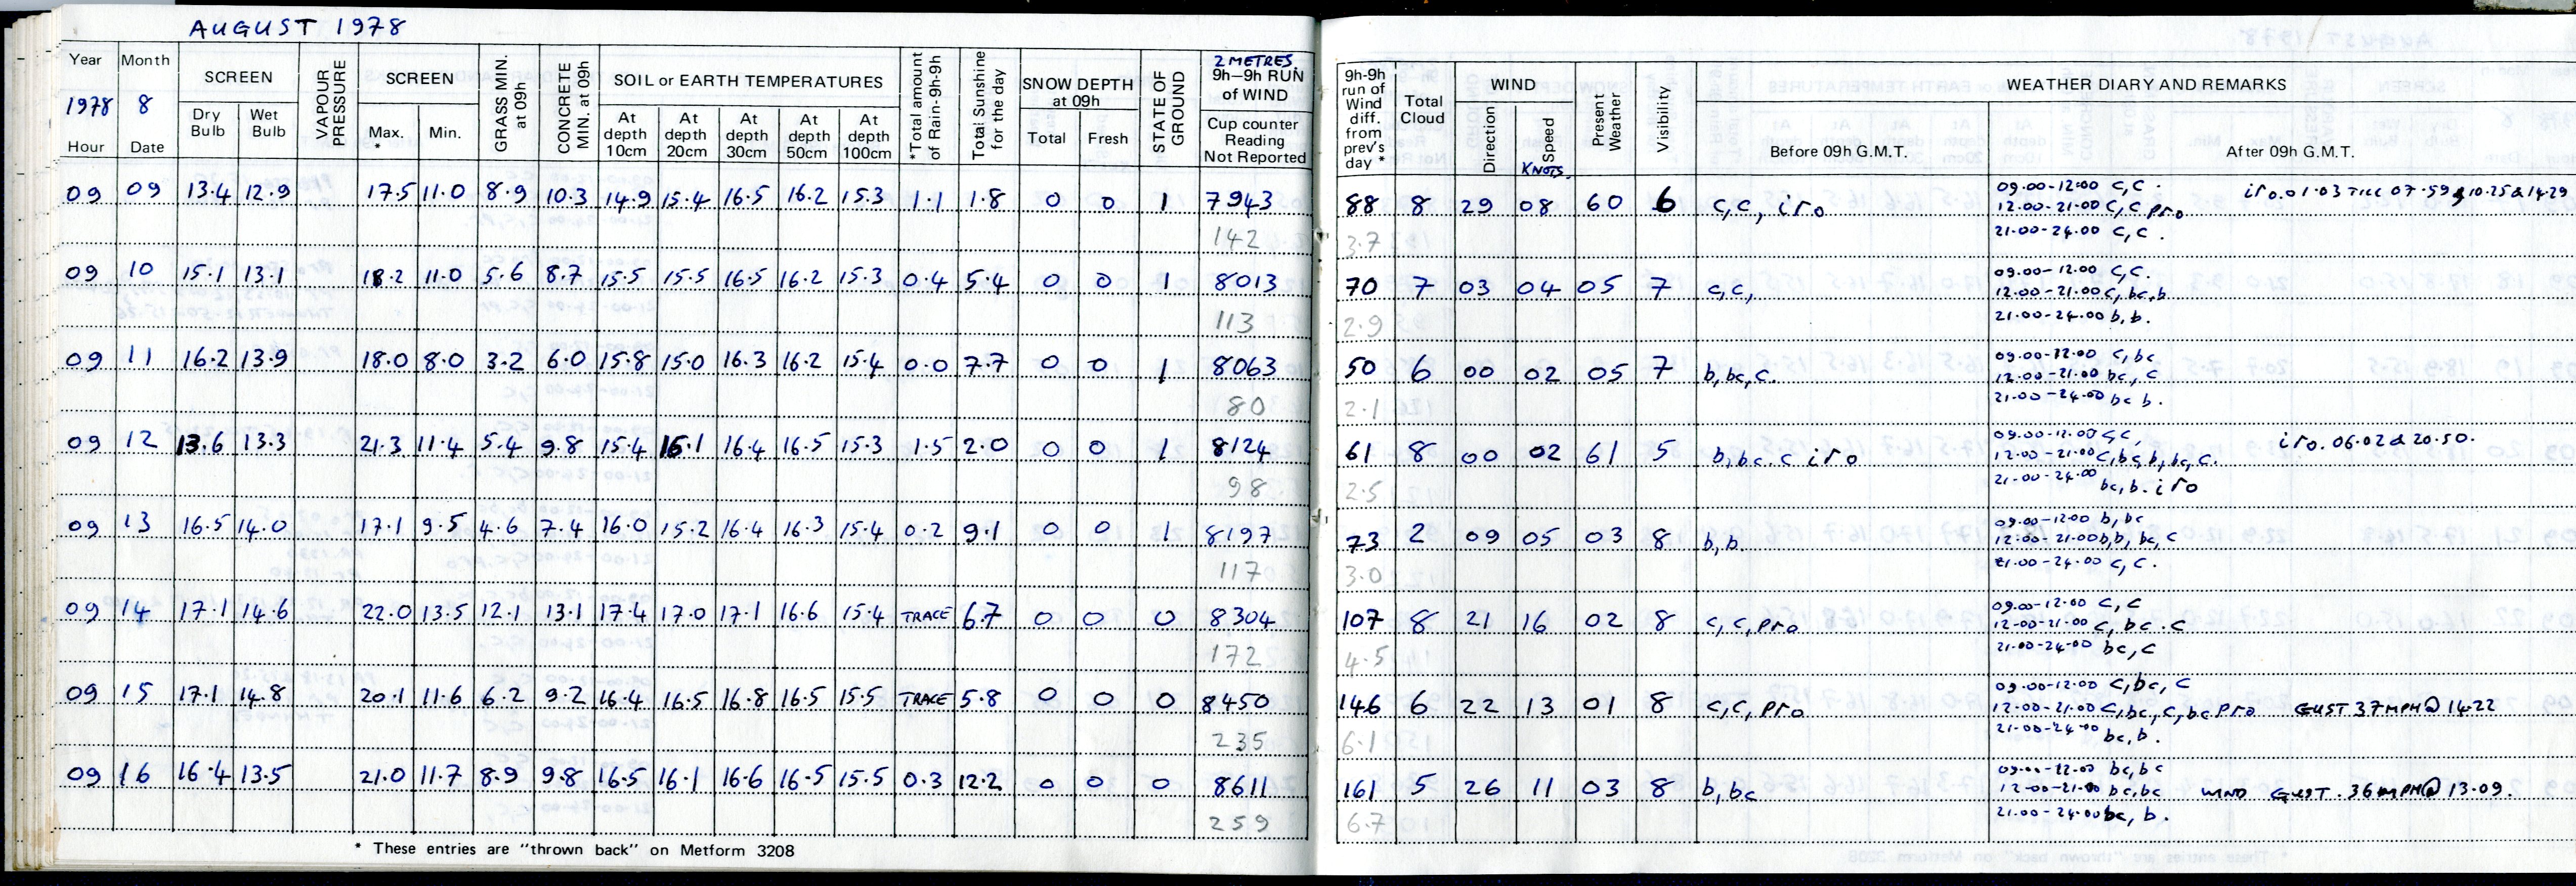 AUGUST 1978
Year Month SCREEN VAPOUR PRESSURE SCREEN GRASS MIN. at 09h CONCRETE MIN. at 09h SOIL or EARTH TEMPERATURES *Total amount of Rain-9h-9h Total Sunshine for the day SNOW DEPTH at 09h STATE OF GROUND 2 METRES 9h-9h RUN of WIND 9h-9h run of Wind diff. from prev's day * Total Cloud WIND Present Weather Visibility WEATHER DIARY AND REMARKS
1978 8 Dry Bulb Wet Bulb Max. * Min. At depth 10cm At depth 20cm At depth 30cm At depth 50cm At depth 100cm Total Fresh Cup counter Reading Not Reported Direction Speed KNOTS.
Hour Date Before 09h G.M.T. After 09h G.M.T.
09 09 13.4 12.9 17.5 11.0 8.9 10.3 14.9 15.4 16.5 16.2 15.3 1.1 1.8 0 0 1 7943 88 8 29 08 60 6 c,c, iro 09.00-12.00 c,c. iro. 01.03 TILL 07.59 & 10.25 & 14.29
12.00-21.00 c,c pro
142 3.7 21.00-24.00 c,c.
09 10 15.1 13.1 18.2 11.0 5.6 8.7 15.5 15.5 16.5 16.2 15.3 0.4 5.4 0 0 1 8013 70 7 03 04 05 7 c,c, 09.00-12.00 c,c.
12.00-21.00 c, bc,b
113 2.9 21.00-24.00 b,b.
09 11 16.2 13.9 18.0 8.0 3.2 6.0 15.8 15.0 16.3 16.2 15.4 0.0 7.7 0 0 1 8063 50 6 00 02 05 7 b,bc,c. 09.00-12.00 c,bc
12.00-21.00 bc, c
80 2.1 21.00-24.00 bc b.
09 12 13.6 13.3 21.3 11.4 5.4 9.8 15.4 16.1 16.4 16.5 15.3 1.5 2.0 0 0 1 8124 61 8 00 02 61 5 b,bc.c iro 09.00-12.00 c,c, iro. 06.02 & 20.50.
12.00-21.00 c,bc,b,bc,c.
98 2.5 21.00-24.00 bc,b. iro
09 13 16.5 14.0 17.1 9.5 4.6 7.4 16.0 15.2 16.4 16.3 15.4 0.2 9.1 0 0 1 8197 73 2 09 05 03 8 b,b. 09.00-12.00 b,bc
12.00-21.00 b,b, bc,c
117 3.0 21.00-24.00 c,c.
09 14 17.1 14.6 22.0 13.5 12.1 13.1 17.4 17.0 17.1 16.6 15.4 TRACE 6.7 0 0 0 8304 107 8 21 16 02 8 c,c,pro 09.00-12.00 c,c
12.00-21.00 c, bc.c
172 4.5 21.00-24.00 bc,c
09 15 17.1 14.8 20.1 11.6 6.2 9.2 16.4 16.5 16.8 16.5 15.5 TRACE 5.8 0 0 0 8450 146 6 22 13 01 8 c,c,pro 09.00-12.00 c,bc,c
12.00-21.00 c,bc,c,bc pro GUST 37MPH@ 14.22
235 6.1 21.00-24.00 bc,b.
09 16 16.4 13.5 21.0 11.7 8.9 9.8 16.5 16.1 16.6 16.5 15.5 0.3 12.2 0 0 0 8611 161 5 26 11 03 8 b,bc 09.00-12.00 bc,bc
12.00-21.00 bc,bc WIND GUST. 36MPH@ 13.09.
259 6.7 21.00-24.00 bc, b.
* These entries are "thrown back" on Metform 3208